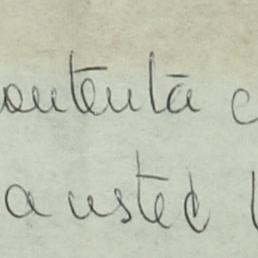 contenta c
a usted